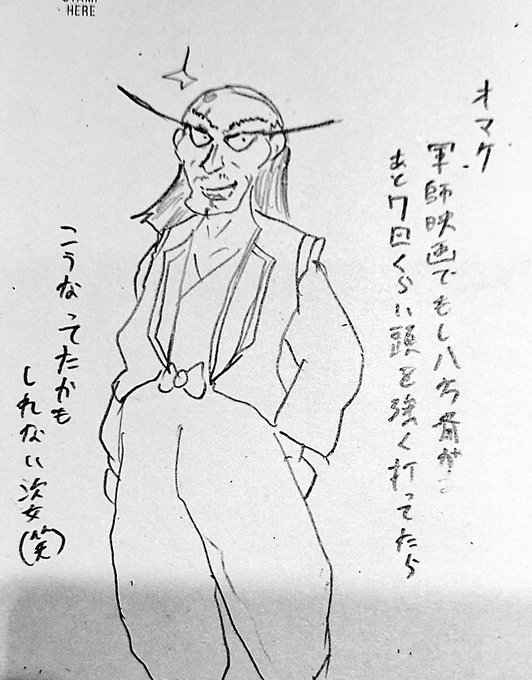 STAMP
HERE
オマケ
軍師映画でもし八
あと7回くらい頭を強く打ってたら
こうなってたかも
しれない次女(笑)